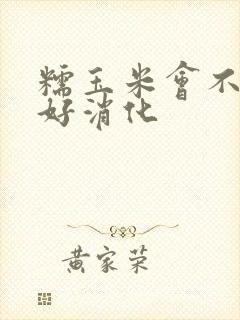 糯玉米會不
好消化
黃家荣